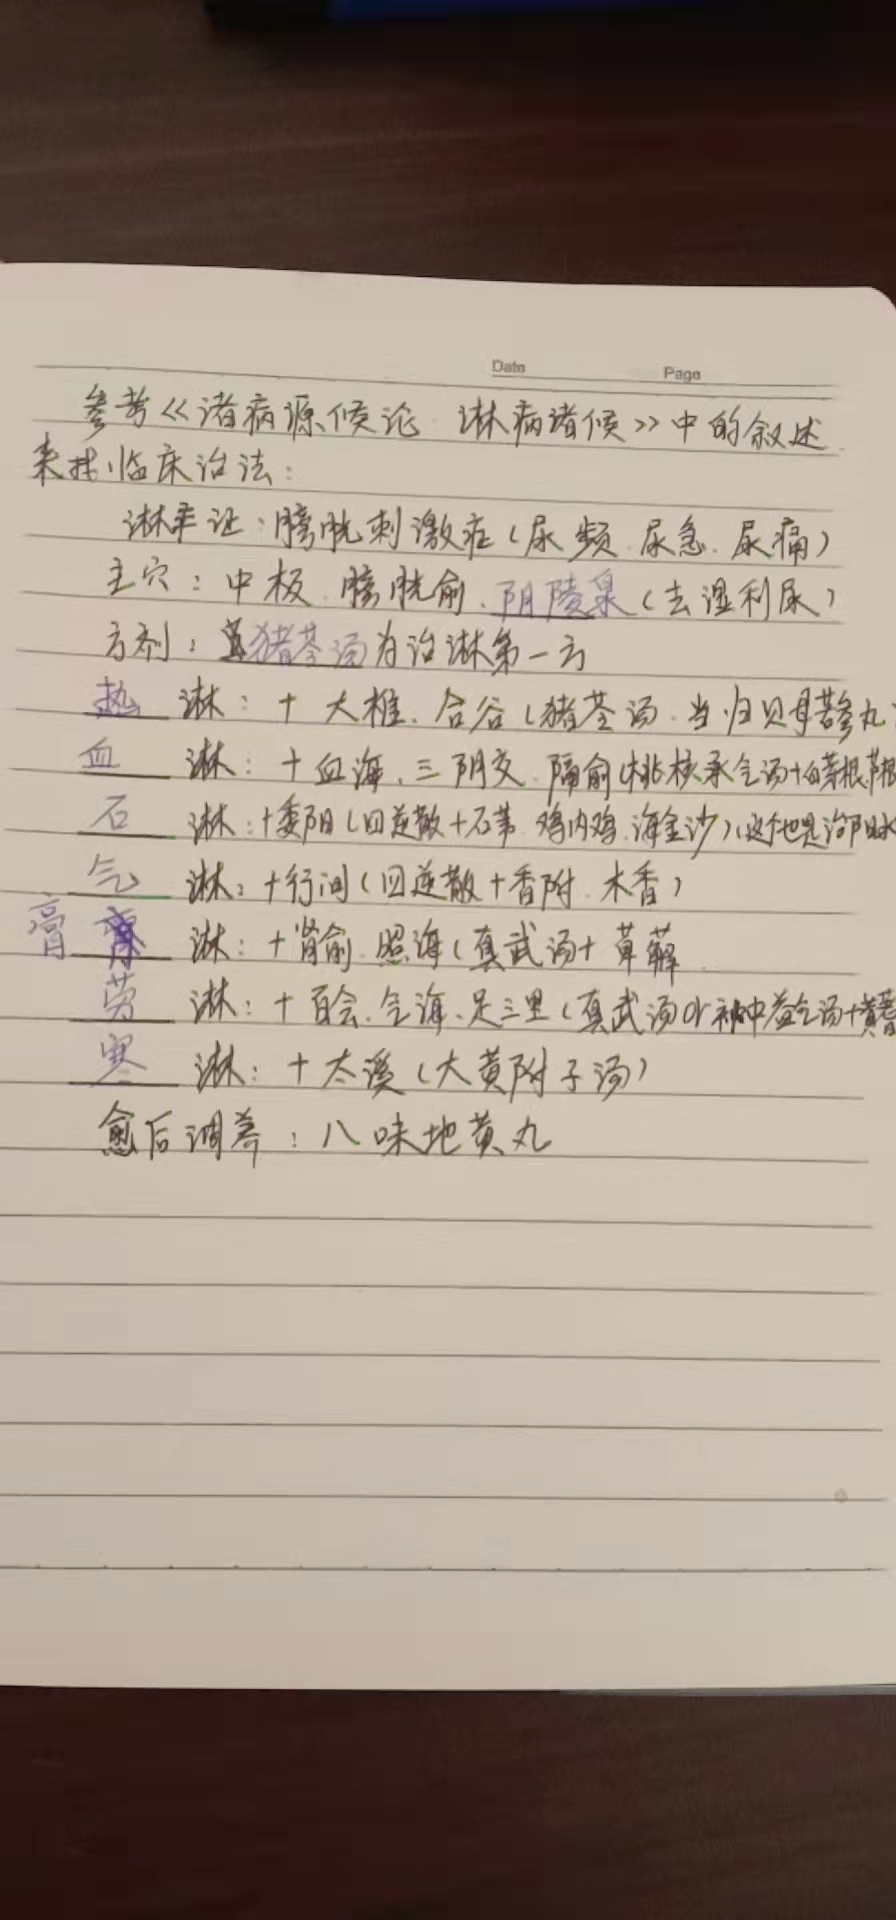 Date Page
参考《诸病源候论·淋病诸候》中的叙述
来找临床治法:
淋率证:膀胱刺激症(尿频.尿急.尿痛)
主穴:中极.膀胱俞、阴陵泉(去湿利尿)
方剂:猪苓汤为治淋第一方
热淋:+大椎.合谷(猪苓汤.当归贝母苦参丸
血淋:+血海、三阴交.隔俞(桃核承气汤+白茅根
石淋:+委阳(四逆散+石苇.鸡内鸡.海金沙)(这个也是治阳水
气淋:+行间(四逆散+香附.木香)
膏淋:+肾俞.照海(真武汤+萆薢
劳淋:+百会、气海、足三里(真武汤or补中益气汤+黄
寒淋:+太溪(大黄附子汤)
愈后调养:八味地黄丸